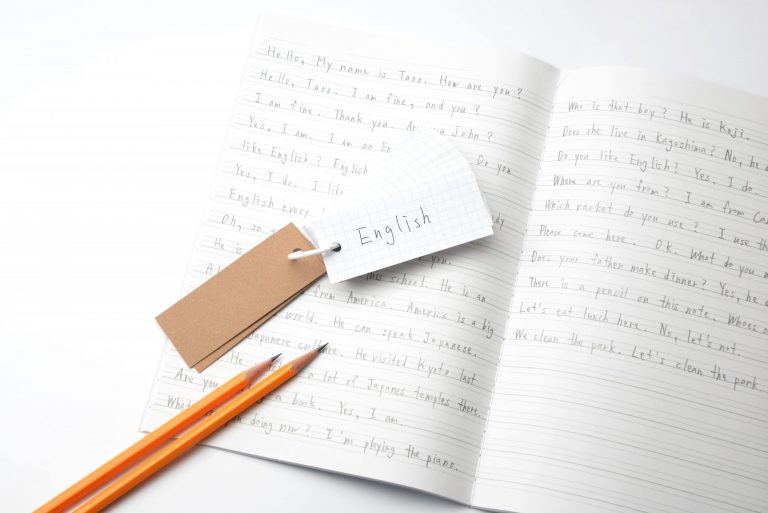 Hello, My name is Taro. How are you?
Hello, Taro. I am fine, and you?
I am fine. Thank you. Are you John?
Yes, I am. I am an En Do you
like English? English
Yes, I do. I like
English every
Oh, so
He is you.
this school. He is an
from America. America is a big
world. He can speak Japanese.
Japanese culture. He visited Kyoto last
He a lot of Japanes temples there.
Are you a book. Yes, I am.
What doing now? I'm playing the piano.
English
Who is that boy? He is Koji.
Does she live in Kagoshima? No, he
Do you like English? Yes, I do.
Where are you from? I am from Can
Which racket do you use? I use th
Please come here. O.K. What do you
Does your father make dinner? Yes, he
There is a pencil on this note. Whoes
Let's eat lunch here. No, let's not.
We clean the park. Let's clean the park